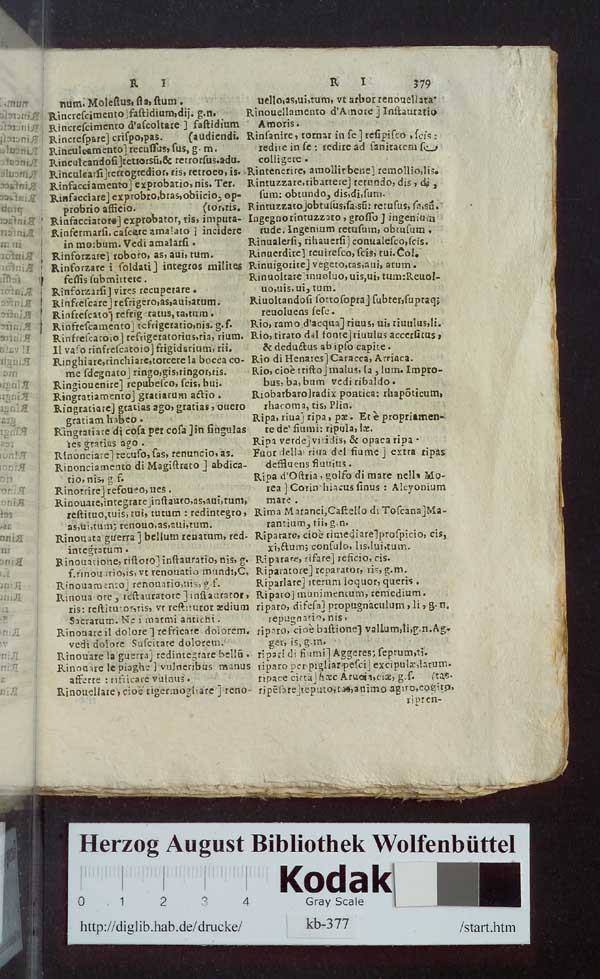 R I
num. Moleſtus, ſta, ſtum.
Rincreſcimento] faſtidium, dij. g.n.
Rincreſcimento d'aſcoltare] faſtidium
Rincreſpare] criſpo, pas. (audiendi.
Rinculeamento] recuſſus, ſus, g. m.
Rinculeandoſi] retrorſũ, & retrorſus. adu.
Rinculearſi] retrogredior, ris, retroeo, is.
Rinfacciamento] exprobatio, nis. Ter.
Rinfacciare] exprobro, bras, obiicio, op-
probrio afficio. (tor, tis.
Rinfacciatore] exprobator, ris, imputa-
Rinfermarſi. caſcare amalato] incidere
in morbum. Vedi amalarſi.
Rinforzare] roboro, as, aui, tum.
Rinforzare i ſoldati] integros milites
feſſis ſubmittere.
Rinforzarſi] vires recuperare.
Rinfreſcare] refrigero, as, aui, atum.
Rinfreſcato] refrigeratus, ta, tum.
Rinfreſcamento] refrigeratio, nis. g. f.
Rinfreſcatoio] refrigatorius, ria, rium.
Il vaſo rinfreſcatoio] frigidarium, rii.
Ringhiare, rinchiare, torcere la bocca co-
me ſdegnato] ringo, gis, ringor, ris.
Ringiouenire] repubeſco, ſcis, hui.
Ringratiamento] gratiarum actio.
Ringratiare] gratias ago, gratias, ouero
gratiam habeo.
Ringratiare di coſa per coſa] in ſingulas
res gratias ago.
Rinonciare] recuſo, ſas, renuncio, as.
Rinonciamento di Magiſtrato] abdica-
tio, nis, g. f.
Rinotrire] refoueo, ues.
Rinouare, integrare] inſtauro, as, aui, tum,
reſtituo, tuis, tui, tutum: redintegro,
as, ui, tum; renouo, as, aui, tum.
Rinouata guerra] bellum renatum, red-
integratum.
Rinouatione, riſtoro] inſtauratio, nis, g.
f. rinouatio, is, vt renouatio mundi, C.
Rinouamento] renouatio, nis, g. f.
Rinouatore, reſtauratore] inſtaurator,
ris: reſtitutor, ris, vt reſtitutor ædium
Sacratum. Ne i marmi antichi.
Rinouare il dolore] refricare dolorem.
vedi dolore Suſcitare dolorem.
Rinouare la guerra] redintegrare bellũ.
Rinouare le piaghe] vulneribus manus
afferre: rifficare vulnus.
Rinouellare, cioè rigermogliare] reno-
R I 379
uello, as, ui, tum, vt arbor renouellata
Rinouellamento d'Amore] Inſtauratio
Amoris.
Rinſanire, tornar in ſe] reſipiſco, ſcis:
redire in ſe: redire ad ſanitatem ſe
colligere.
Rintenerire, amollir bene] remollio, lis.
Rintuzzare, ribattere] retundo, dis, di,
ſum: obtundo, dis, di, ſum.
Rintuzzato] obtuſus, ſa, sũ: retuſus, ſa, sũ.
Ingegno rintuzzato, groſſo] ingenium
rude. Ingenium retuſum, obtuſum.
Rinualerſi, rihauerſi] conualeſco, ſcis.
Rinuerdire] reuireſco, ſcis, tui. Col.
Rinuigorire] vegeto, tas, aui, atum.
Rinuoltare] inuoluo, uis, ui, tum: Reuol-
uo, uis, ui, tum.
Riuoltandoſi ſottoſopra] ſubter, ſupraq;
reuoluens ſeſe.
Rio, ramo d'acqua] riuus, ui, riuulus, li.
Rio, tirato dal fonte] riuulus accerſitus,
& deductus ab ipſo capite.
Rio di Henares] Caracca, Arriaca.
Rio, cioè triſto] malus, la, lum. Impro-
bus, ba, bum vedi ribaldo.
Riobarbaro] radix pontica: rhapõticum,
rhacoma, tis, Plin.
Ripa, riua] ripa, pæ. Et è propriamen-
te de' fiumi: ripula, læ.
Ripa verde] viridis, & opaca ripa.
Fuor della riua del fiume] extra ripas
defluens fluuius.
Ripa d'Oſtria, golfo di mare nella Mo-
rea] Corinthiacus ſinus: Alcyonium
mare.
Rima Maranci, Caſtello di Toſcana] Ma-
rantium, tii, g.n.
Riparare, cioè rimediare] proſpicio, cis,
xi, ctum; conſulo, lis, lui, tum.
Riparare, rifare] reficio, cis.
Riparatore] reparator, ris, g.m.
Riparlare] iterum loquor, queris.
Riparo] munimentum, remedium.
riparo, difeſa] propugnaculum, li, g. n.
repugnatio, nis.
riparo, cioè baſtione] vallum, li, g.n. Ag-
ger, is, g.m.
ripari di fiumi] Aggeres; ſeptum, ti.
riparo per pigliar peſci] excipulæ, larum.
ripace città] hæc Aruoia, ciæ, g.f. (tas.
ripẽſare] reputo, tas, animo agito, cogito,
ripren-
Herzog August Bibliothek Wolfenbüttel
Kodak
Gray Scale
0 1 2 3 4
http://diglib.hab.de/drucke/ kb-377 /start.htm